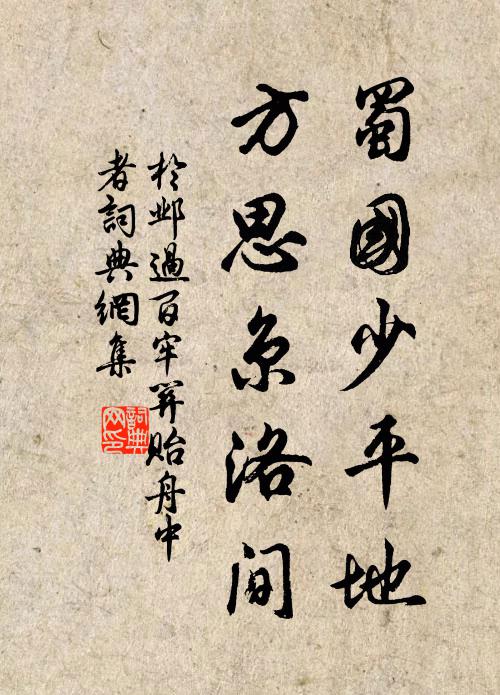 蜀國少平地
方思京洛間
於鄴過百牢關貽舟中
者詞典網集
詞典
网印